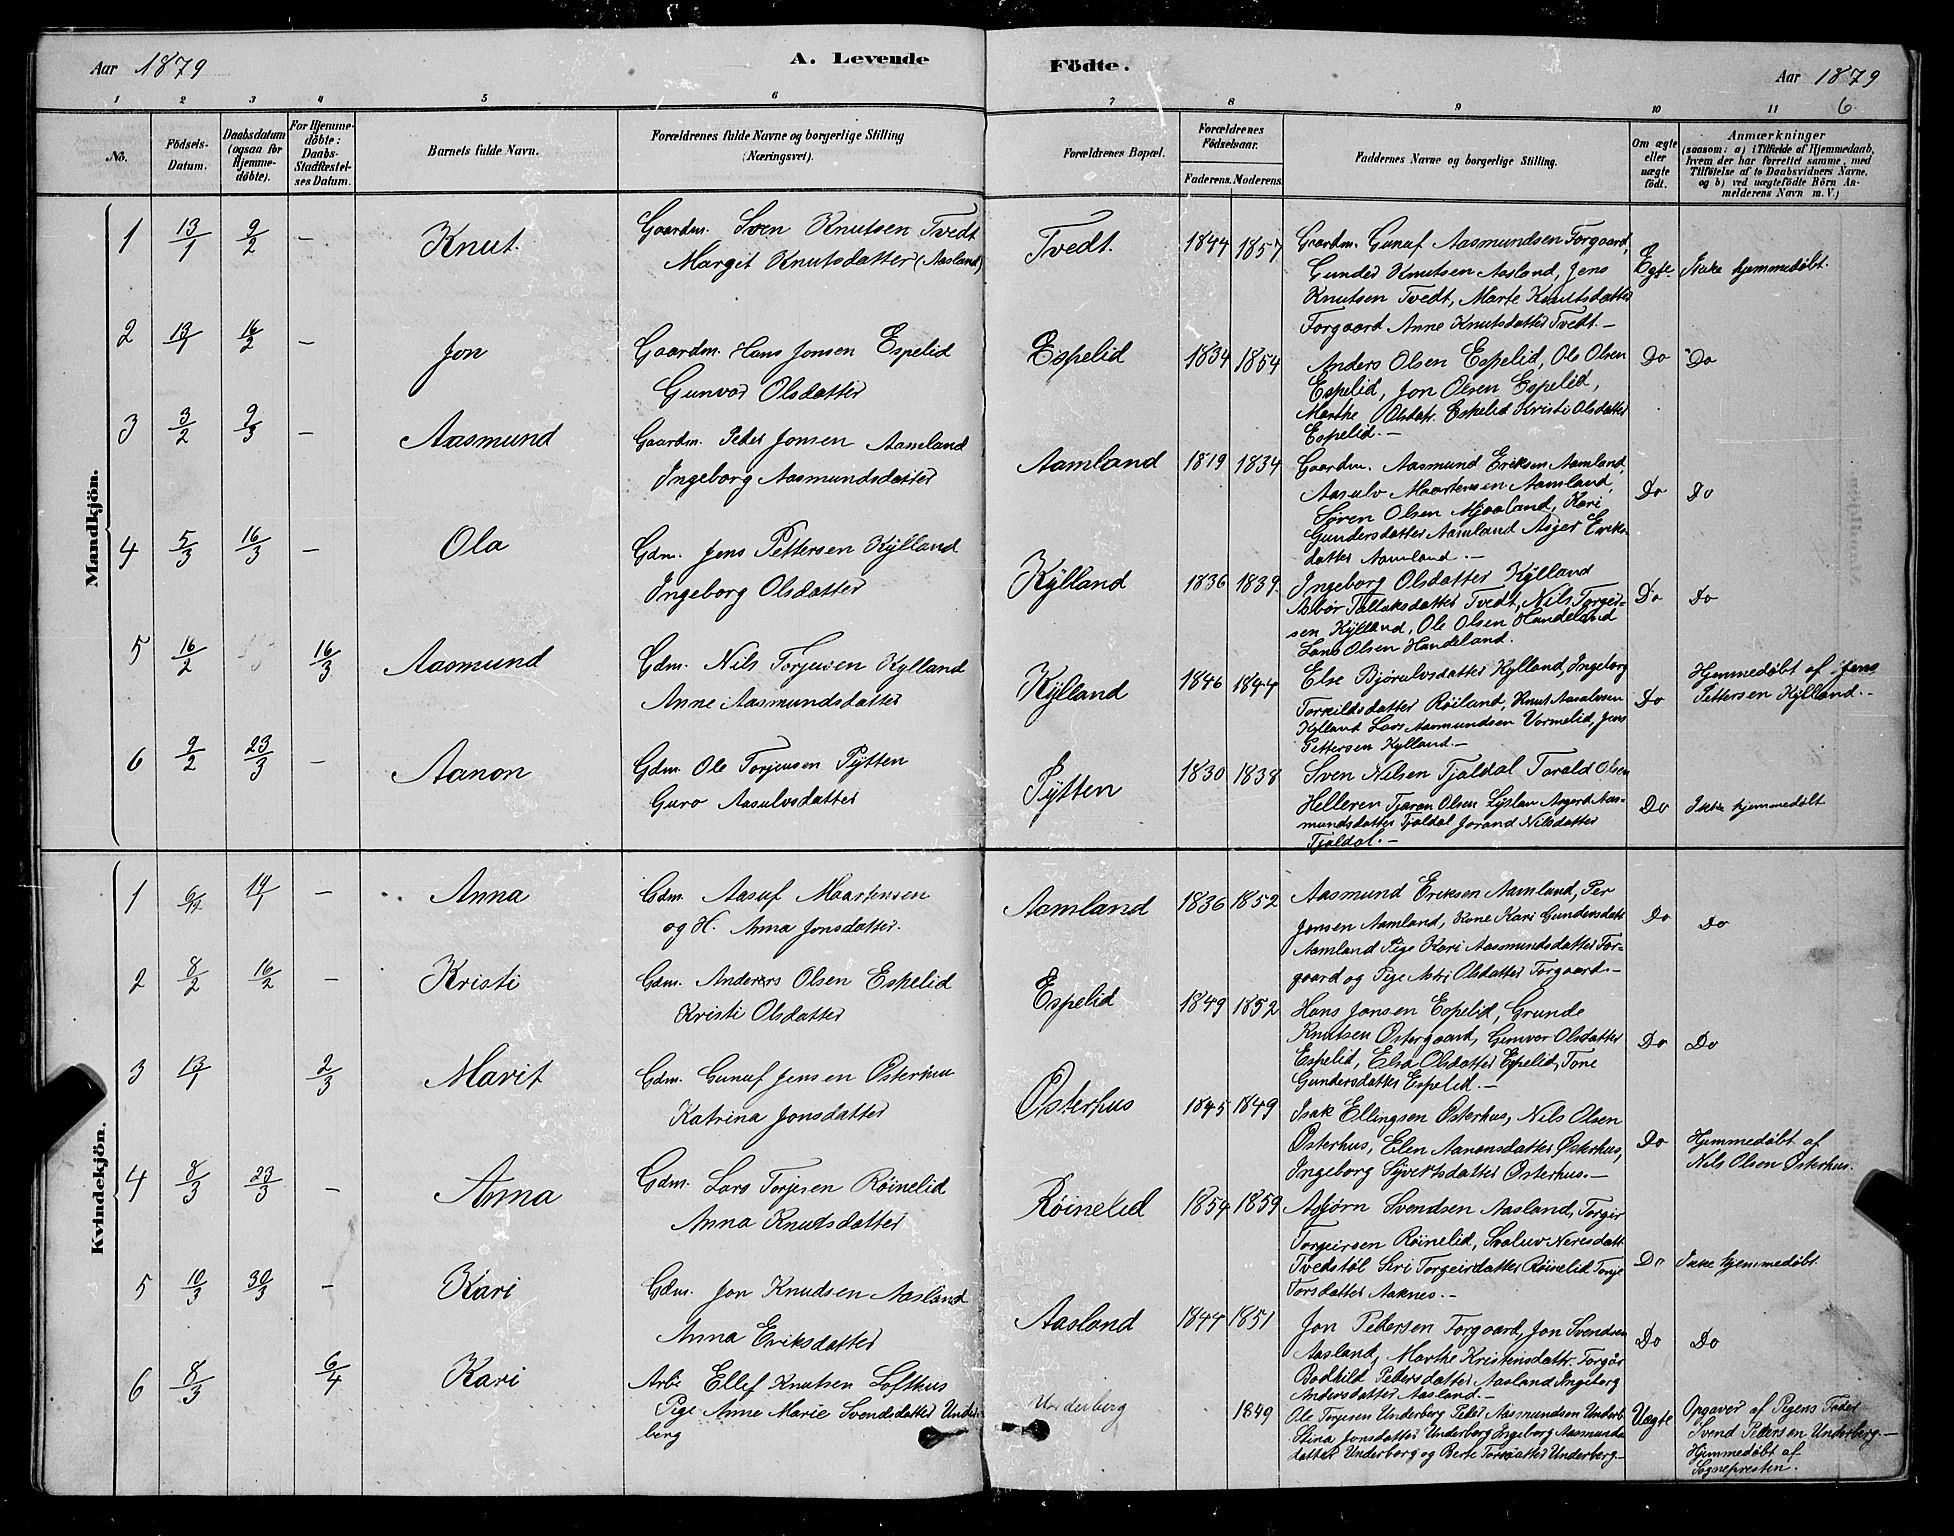 Aar 1879
A. Levende
Födte.
Aar 1879
6
1 2 3 4 5 6 7 8 9 10 11
No.
Födsels-
Datum.
Daabsdatum
(ogsaa for
Hjemme-
döbte).
For Hjemme-
döbte:
Daabs-
Stadfæstel-
ses Datum.
Barnets fulde Navn.
Forældrenes fulde Navne og borgerlige Stilling
(Næringsvei).
Forældrenes Bopæl.
Forældrenes
Födselsaar.
Faderens. Moderens.
Faddernes Navne og borgerlige Stilling.
Om ægte
eller
uægte
födt.
Anmærkninger
(saasom: a) i Tilfælde af Hjemmedaab,
hvem der har forrettet samme, med
Tilföielse af to Daabsvidners Navne.
og b) ved uægtefödte Börn An-
melderens Navn m. V.)
Mandkjön.
1 13/1 9/2 – Knut.
Gaardm. Sven Knutsen Tvedt
Margit Knutsdatter (Aasland)
Tvedt. 1844 1857
Gaardm. Gunuf Aasmundsen Torgaard,
Gunder Knutsen Aasland, Jens
Knutsen Tvedt, Marte Knutsdatter
Torgaard Anne Knutsdatter Tvedt.–
Egte. Ikke hjemmedøbt.
2 13/1 16/2 – Jon
Gaardm. Hans Jonsen Espelid
Gunvor Olsdatter
Espelid 1834 1854
Anders Olsen Espelid, Ole Olsen
Espelid, Jon Olsen Espelid,
Marthe Olsdatr. Espelid Kristi Olsdatter
Espelid.–
Do Do
3 3/2 9/3 – Aasmund
Gaardm. Peder Jonsen Aamland
Ingeborg Aasmundsdatter
Aamland 1819 1834
Gaardm. Aasmund Eriksen Aamland,
Aasulv Maartensen Aamland,
Søren Olsen Mjaaland, Kari
Gundersdatter Aamland Asger Eriks-
datter Aamland.–
Do Do
4 5/3 16/3 – Ola
Gdm. Jens Pettersen Kylland
Ingeborg Olsdatter
Kylland 1836 1839
Ingeborg Olsdatter Kylland
Asbør Tallaksdatter Tvedt, Nils Torger-
sen Kylland, Ole Olsen Handeland
Lars Olsen Handeland.
Do Do
5 16/2 16/3 Aasmund
Gdm. Nils Torjusen Kylland
Anne Aasmundsdatter
Kylland 1846 1844
Else Bjørulvsdatter Kylland, Ingeborg
Torkildsdatter Røiland, Knut Aasulvsen
Kylland Lars Aasmundsen Vormelid, Jens
Pettersen Kylland.–
Do Hjemmedøbt af Jens
Pettersen Kylland.–
6 9/2 23/3 – Aanon
Gdm. Ole Torjusen Pytten
Guro Aasulvsdatter
Pytten 1830 1838
Sven Nilsen Tjaldal Torald Olsen
Helleren Tjaran Olsen Lyslau Asgerd Aas-
mundsdatter Tjaldal Jorand Nilsdatter
Tjaldal.–
Do Ikke hjemmedøbt
Kvindekjön.
1 6/12 19/1 – Anna
Gdm. Aasuf Maartensen
og H. Anna Jonsdatter.
Aamland 1836 1852
Aasmund Eriksen Aamland, Per
Jonsen Aamland, Kone Kari Gundersdatr
Aamland Pige Kari Aasmundsdatter Tor-
gaard og Pige Asbi Olsdatter Torgaard.–
Do Do
2 8/2 16/2 – Kristi
Gdm. Anders Olsen Espelid
Kristi Olsdatter
Espelid 1849 1852
Hans Jonsen Espelid, Grunde
Knutsen Østergaard, Gunvor Olsdatter
Espelid, Elsa Olsdatter Espelid, Tone
Gundersdatter Espelid.–
Do Do
3 13/1 2/3 Marit
Gdm. Gunuf Jensen Østerhus
Katrina Jonsdatter
Østerhus 1845 1849
Isak Ellingsen Østerhus, Nils Olsen
Østerhus, Elen Aanonsdatter Østerhus,
Ingeborg Syvertsdatter Østerhus.–
Do Hjemmedøbt af
Nils Olsen Østerhus.
4 8/3 23/3 – Anna
Gdm. Lars Torjesen Røinelid
Anna Knudsdatter
Røinelid 1854 1859
Asjørn Svendsen Aasland, Torgir
Torgeirsen Røinelid, Svaluv Neresdatt.
Tvedstøl Siri Torgeirdatter Røinelid Tonje
Torsdatter Aaknes.–
Do Ikke hjemmedøbt.
5 10/3 30/3 – Kari
Gdm. Jon Knudsen Aasland
Anna Eriksdatter
Aasland 1844 1851
Jon Pedersen Torgaard, Jon Svendsen
Aasland, Marthe Kristensdattr. Torgår
Bodhild Pedersdatter Aasland Ingeborg
Andersdatter Aasland.–
Do Do
6 8/3 6/4 Kari
Arbr Ellef Knutsen Lofthus
Pige Anne Marie Svendsdatter Under-
berg
Underberg 1849
Ole Torjesen Underberg Peder Aasmundsen Underb.
Stina Jonsdatter Underberg Ingeborg Aasmunds
datter Underberg og Berte Torsdatter Underberg.–
Uægte Opgaver af Pigens Fader
Svend Pedersen Underberg.–
Hjemmedøbt af
Sognepresten.